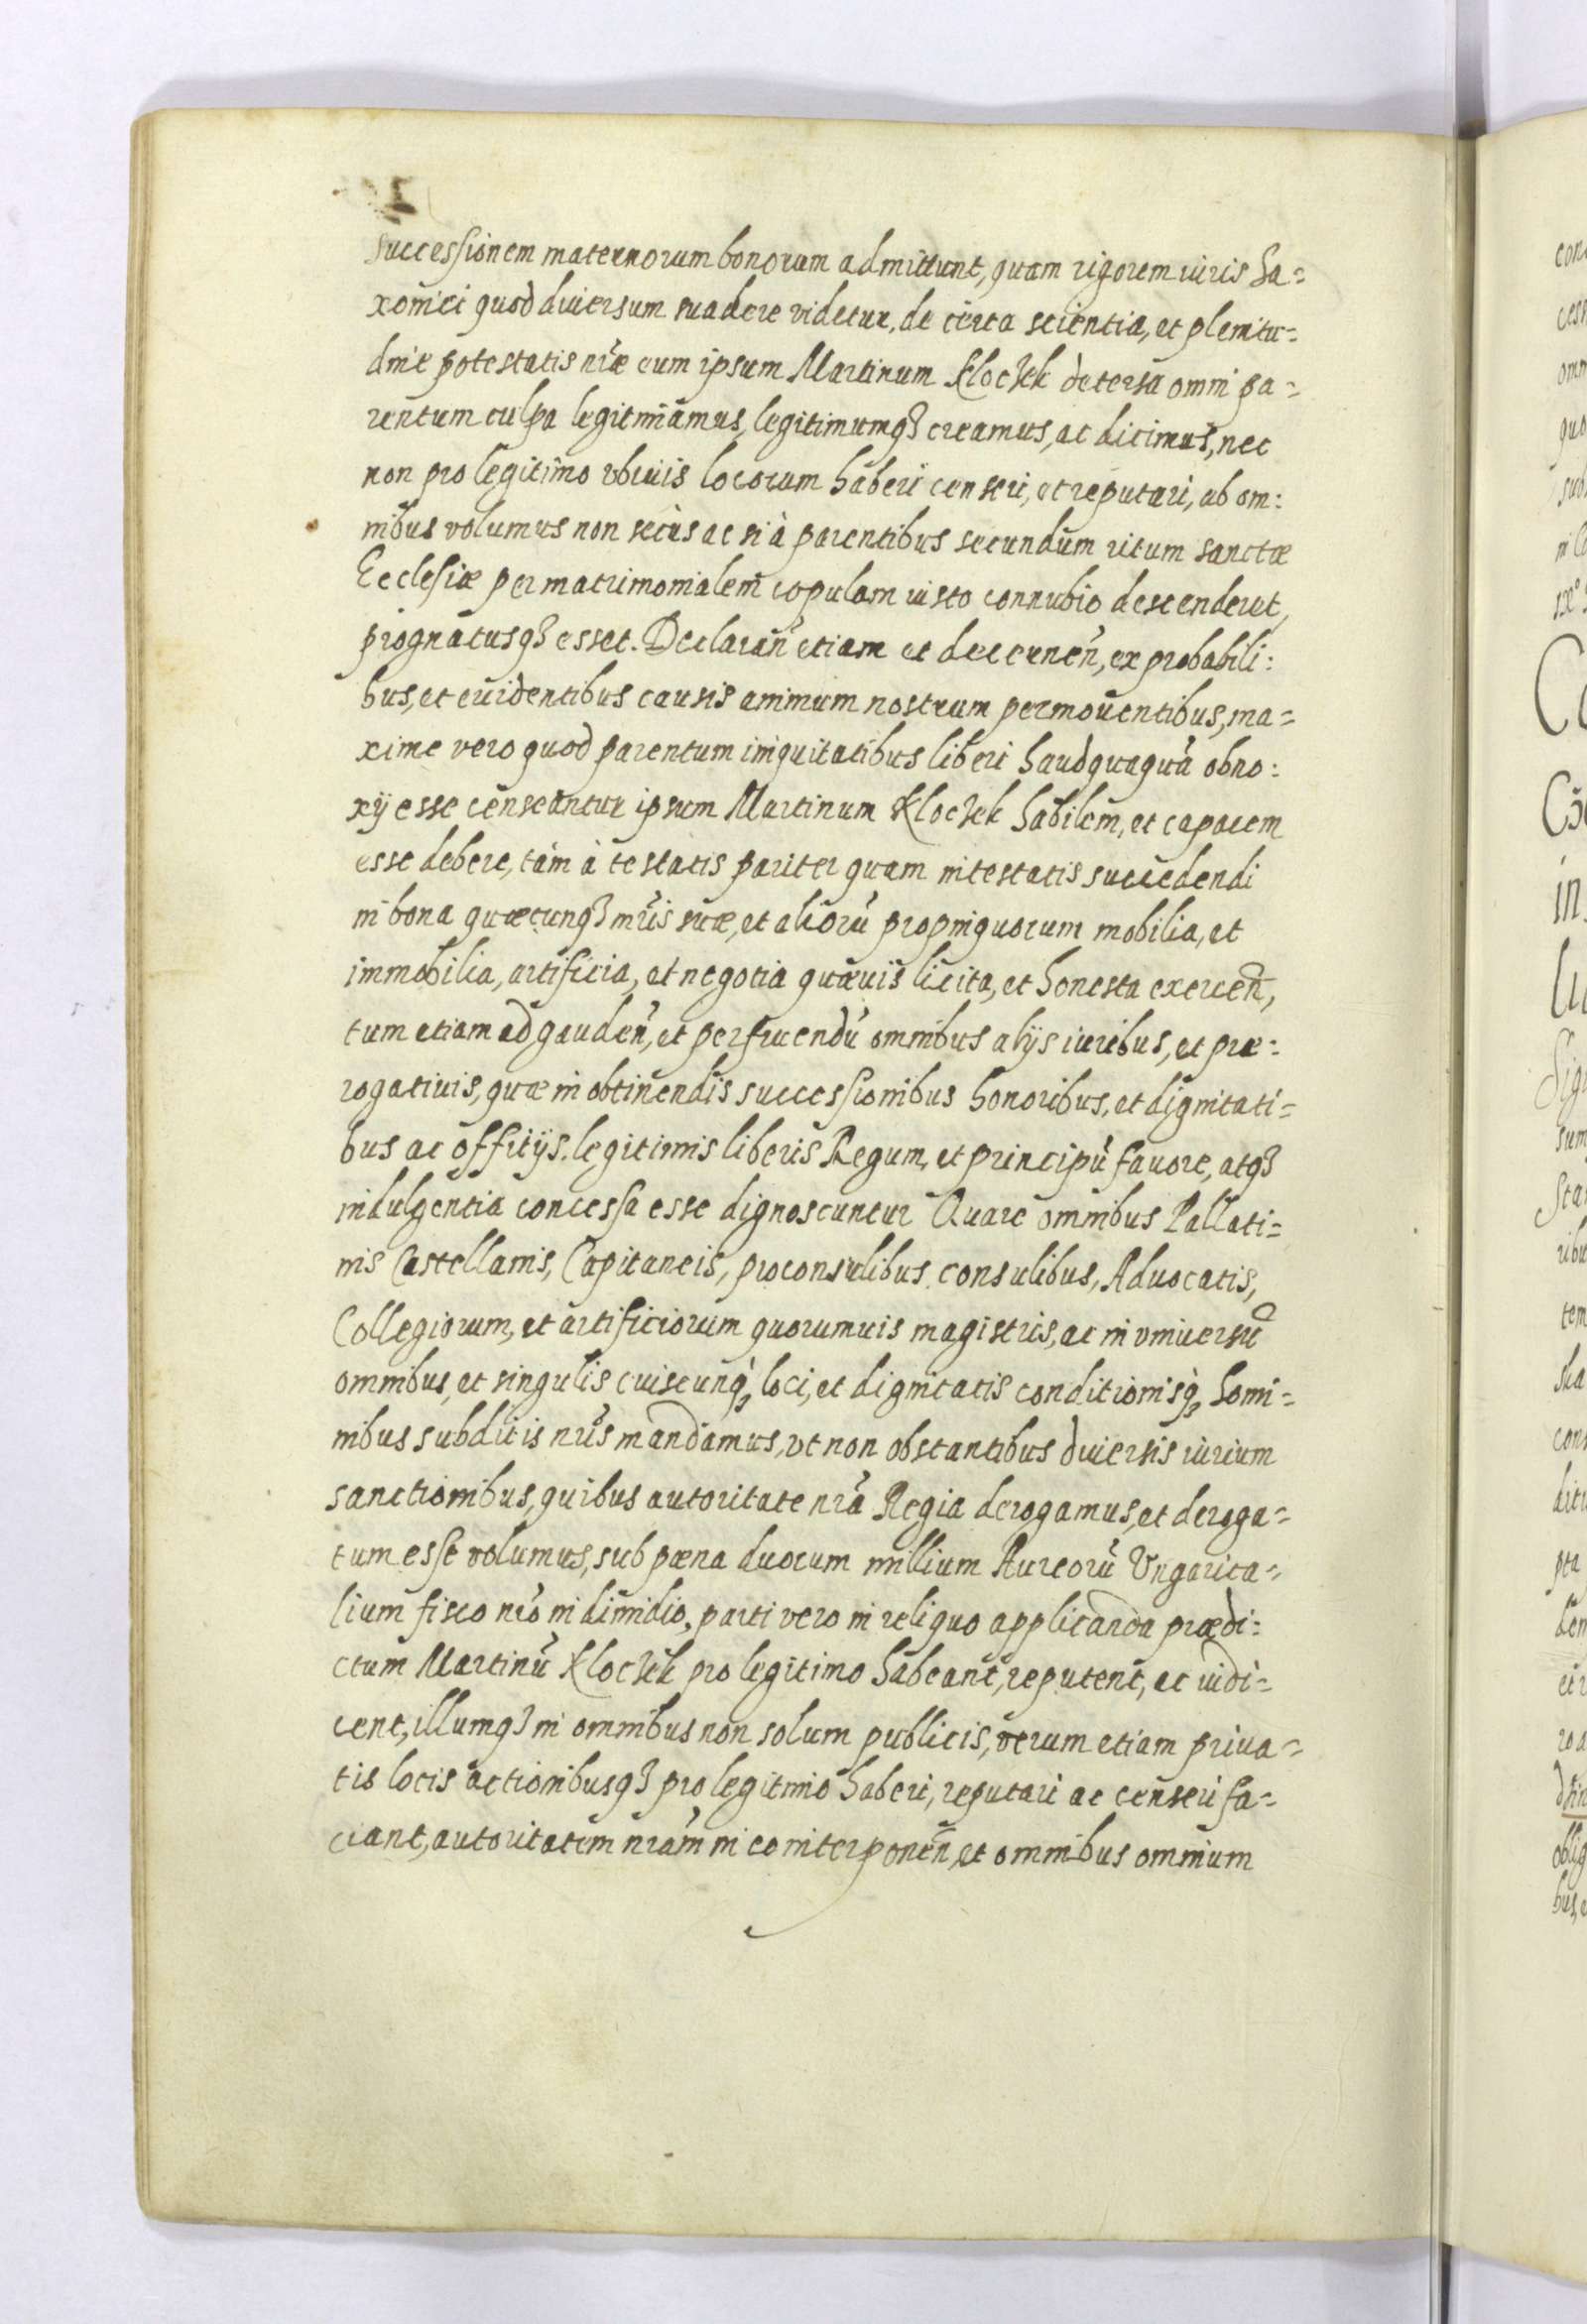 successionem maternorum bonorum admittunt, quam rigorem iuris Sa=
xonici quod diuersum suadere videtur, de certa scientia, et plenitu=
dine potestatis nr̃æ eum ipsum Martinum Kloczek detersa omni pa=
rentum culpa legitimamus, legitimumq3 creamus, ac dicimus, nec
non pro legitimo vbiuis locorum haberi censeri, et reputari, ab om:
nibus volumus non secùs ac si à parentibus secundùm ritum sanctæ
Ecclesiæ per matrimonialem copulam iusto connubio descenderet,
prognatusq3 esset. Declarañ etiam et decerneñ, ex probabili:
bus, et euidentibus causis animum nostrum permouentibus, ma=
xime vero quod parentum iniquitatibus liberi haudquaquã obno:
xij esse censeantur ipsum Martinum Kloczek habilem, et capacem
esse debere, tàm à testatis pariter quam intestatis succedendi
in bona quæcunq3 mr̃is suæ, et aliorũ propinquorum mobilia, et
immobilia, artificia, et negotia quæuis licita, et honesta exerceñ,
tum etiam ad gaudeñ, et perfruendũ omnibus alijs iuribus, et præ:
rogatiuis, quæ in obtinendis successionibus honoribus, et dignitati=
bus ac offitijs legitimis liberis Regum, et principũ fauore, atq3
indulgentia concessa esse dignoscuntur Quare omnibus Pallati=
nis Castellanis, Capitaneis, proconsulibus consulibus, Aduocatis,
Collegiorum, et artificiorum quorumuis magistris, ac in vniuersũ
omnibus, et singulis cuiscunq; loci, et dignitatis conditionisq; homi=
nibus subditis nr̃is mandamus, vt non obstantibus diuersis iurium
sanctionibus, quibus autoritate nr̃a Regia derogamus, et deroga=
tum esse volumus, sub pæna duorum millium Aureorũ Vngarica=
lium fisco nr̃o in dimidio, parti vero in reliquo applicanda prædi:
ctum Martinũ Kloczek pro legitimo habeant, reputent, ac iudi=
cent, illumq3 in omnibus non solum publicis, verum etiam priua=
tis locis actionibusq3 pro legitimo haberi, reputari ac censeri fa=
ciant, autoritatem nr̃am in eo interponeñ, et omnibus omnium